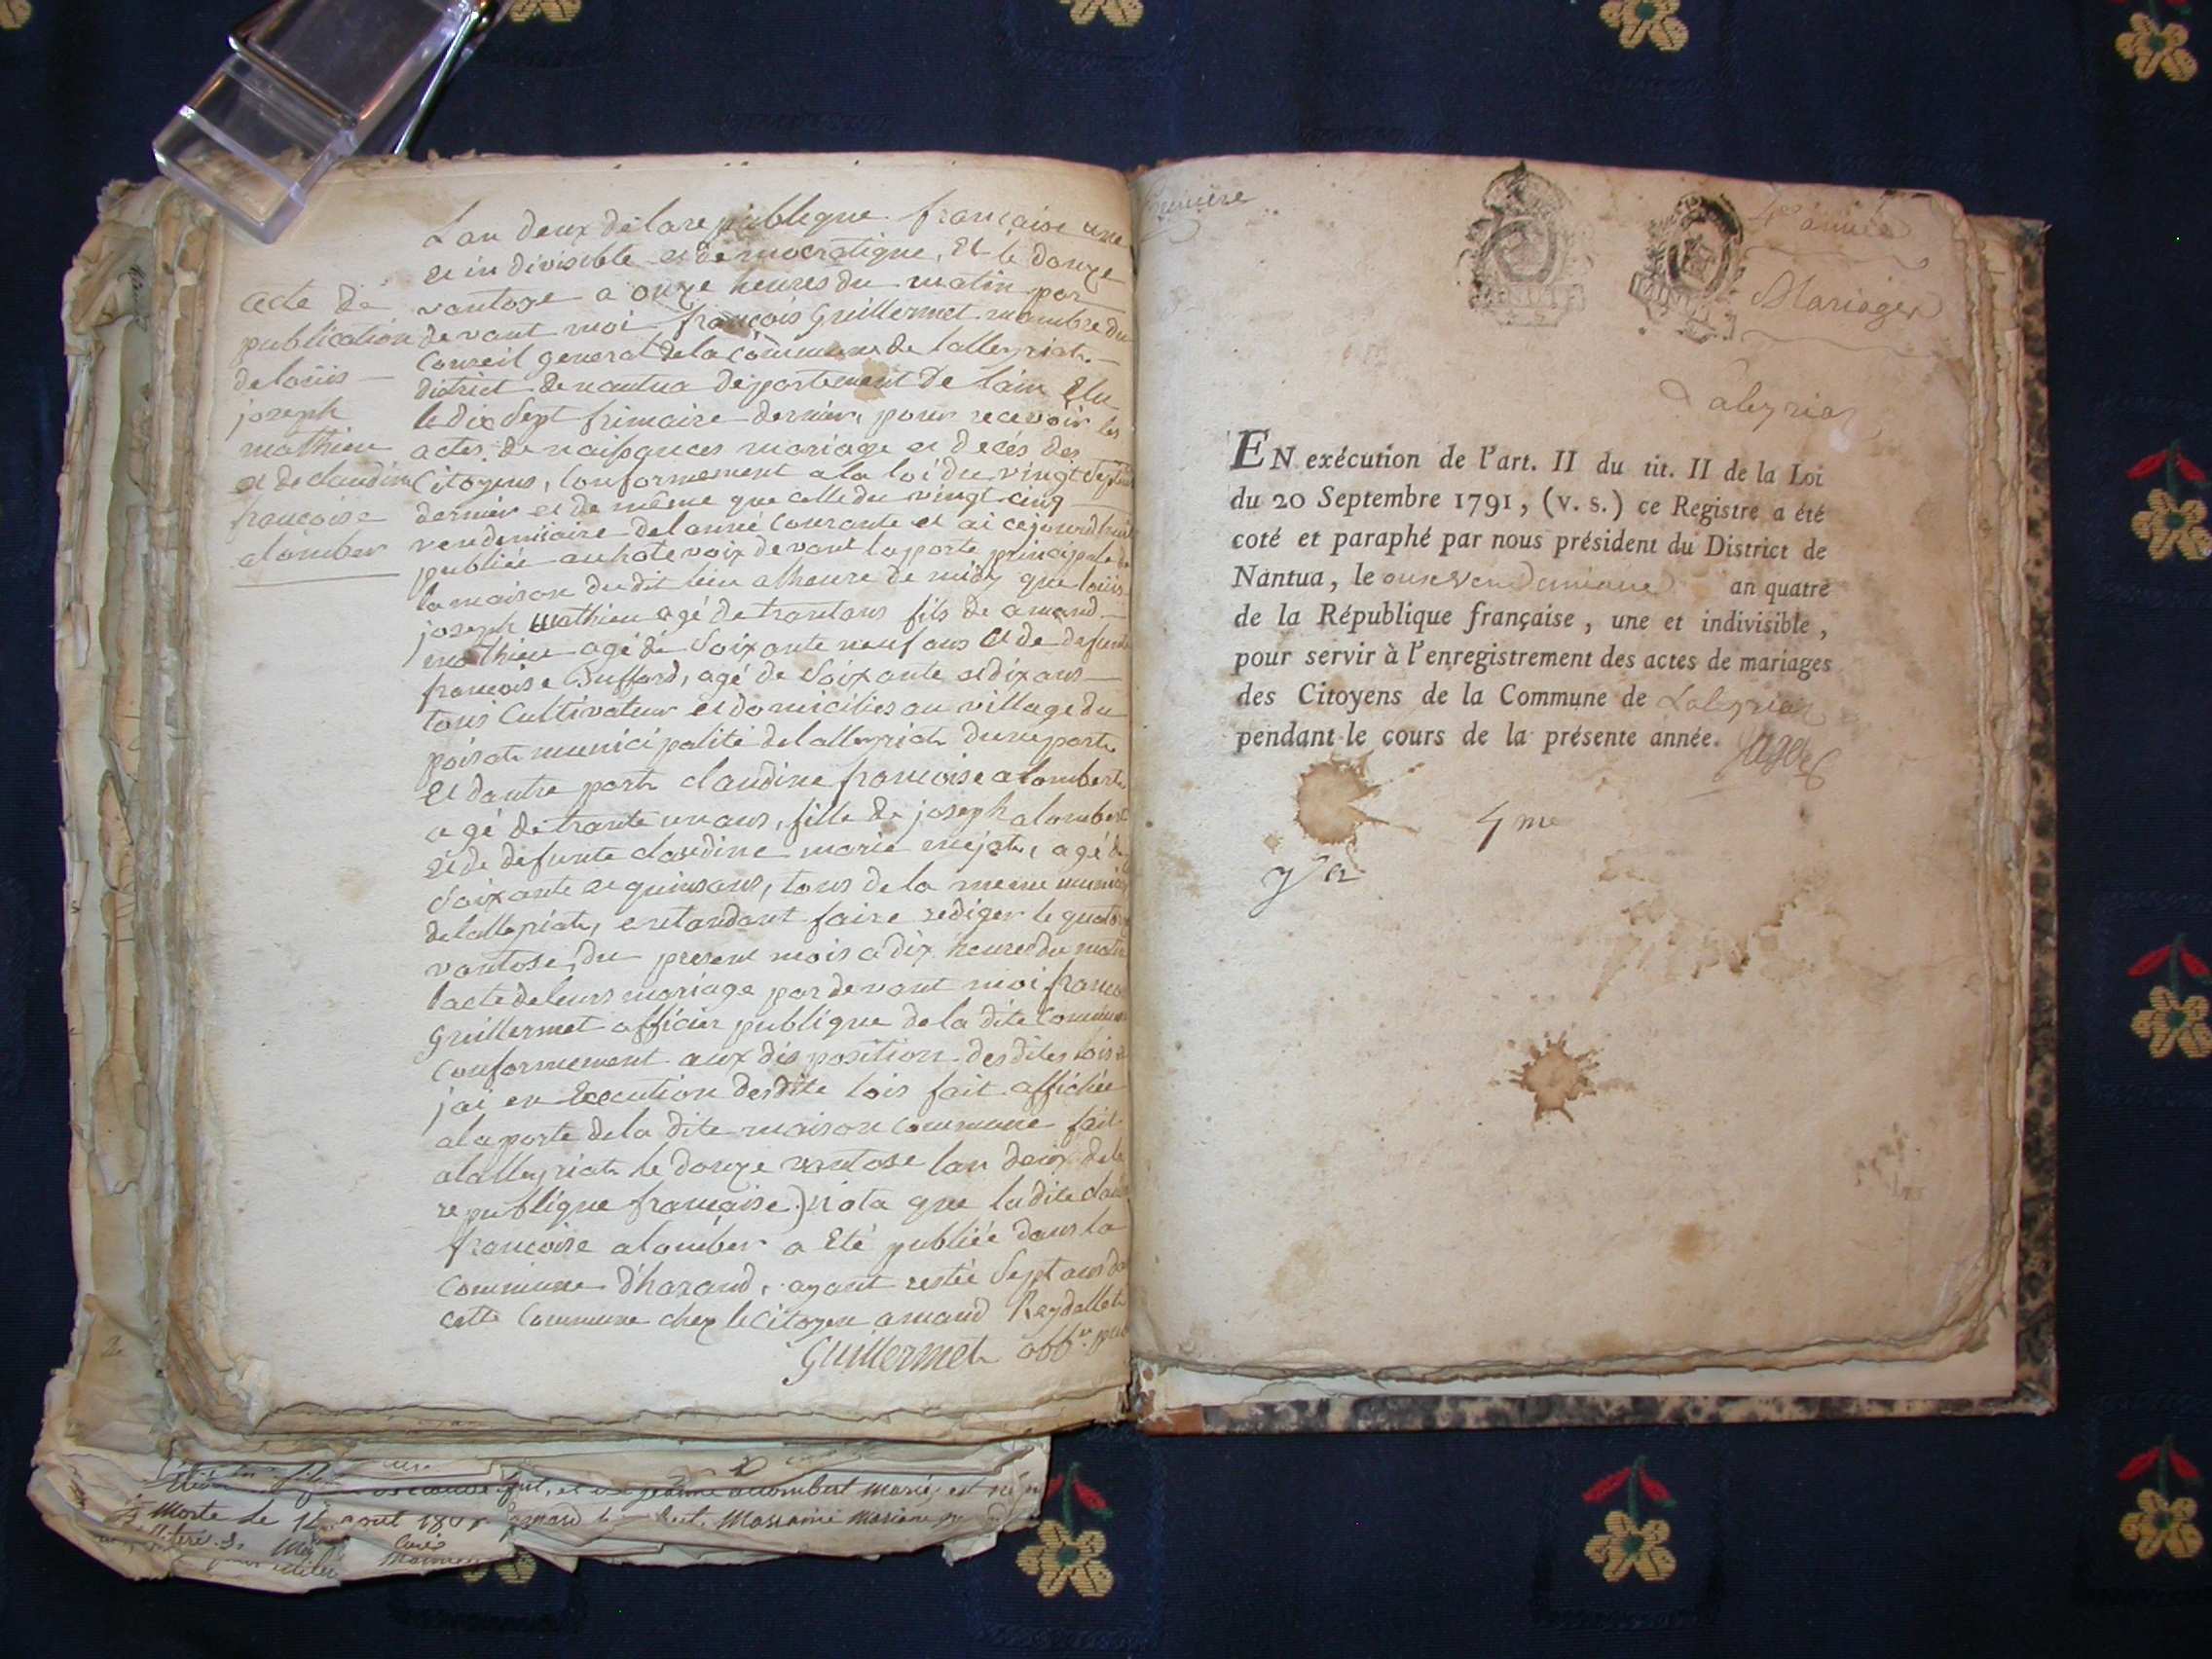 acte de
publication
de loüis
joseph
mathieu
et de claudine
francoise
alomber
Lan deux de la republique francaise une
et indivisible et democratique, Et le douze
vantoze a onze heures du matin par
devant moi françois Guillermet mambre du
Conseil general de la commune de lalleyriat
district de nantua departement de lain Elu
le dix Sept frimaire dernier, pour recevoir les
actes de naissances mariage et decés des
Citoyens, Conformement a la loi du vingt Septembre
dernier et de même que celle du vingt cinq
vendemiaire de lanné Courante et ai cejourdhui
publiée au hate voix devant la porte principale de
la maison du dit lieu a lheure de midy que loüis
joseph Mathieu agé de trantans fils de amand
mathieu agé de Soixante neuf ans Et de defunte
francoise Buffard, agé de Soixante et dix ans
tous Cultivateur et domicilies au village du
poisat municipalité de lalleyriat dune part
Et dautre part claudine francoise alombert
agé de trante un ans, fille de joseph alombert
Et de defunte claudine marie mejat, agé de
Soixante et quinsans, tous de la meme
de lalleyriat, entandant faire rediger le
vantose, du present mois a dix heures du matin
lacte de leurs mariage par devant moi
Guillermet officier publique de la dite Commune
Conformement aux disposition desdites lois
jai en Execution desdite lois fait affichée
a la porte de la dite maison commune fait
a lalleyriat le douze vantose lan deux de la
republique francaise) nota que la dite
francoise alomber a Eté publiée dans la
Commune d'harand, ayant restée Sept ans
cette Commune chez le Citoyen amand Reydellet
Guillermet off.er pub
premiere
4eme année
Mariages
Laleyriat
EN exécution de l'art. II du tit. II de la Loi
du 20 Septembre 1791, (v. s.) ce Registre a été
coté et paraphé par nous président du District de
Nantua, le onze vendemiaire an quatre
de la République française, une et indivisible,
pour servir à l'enregistrement des actes de mariages
des Citoyens de la Commune de Laleyriat
pendant le cours de la présente année.
4 me
alombert
Morte Le